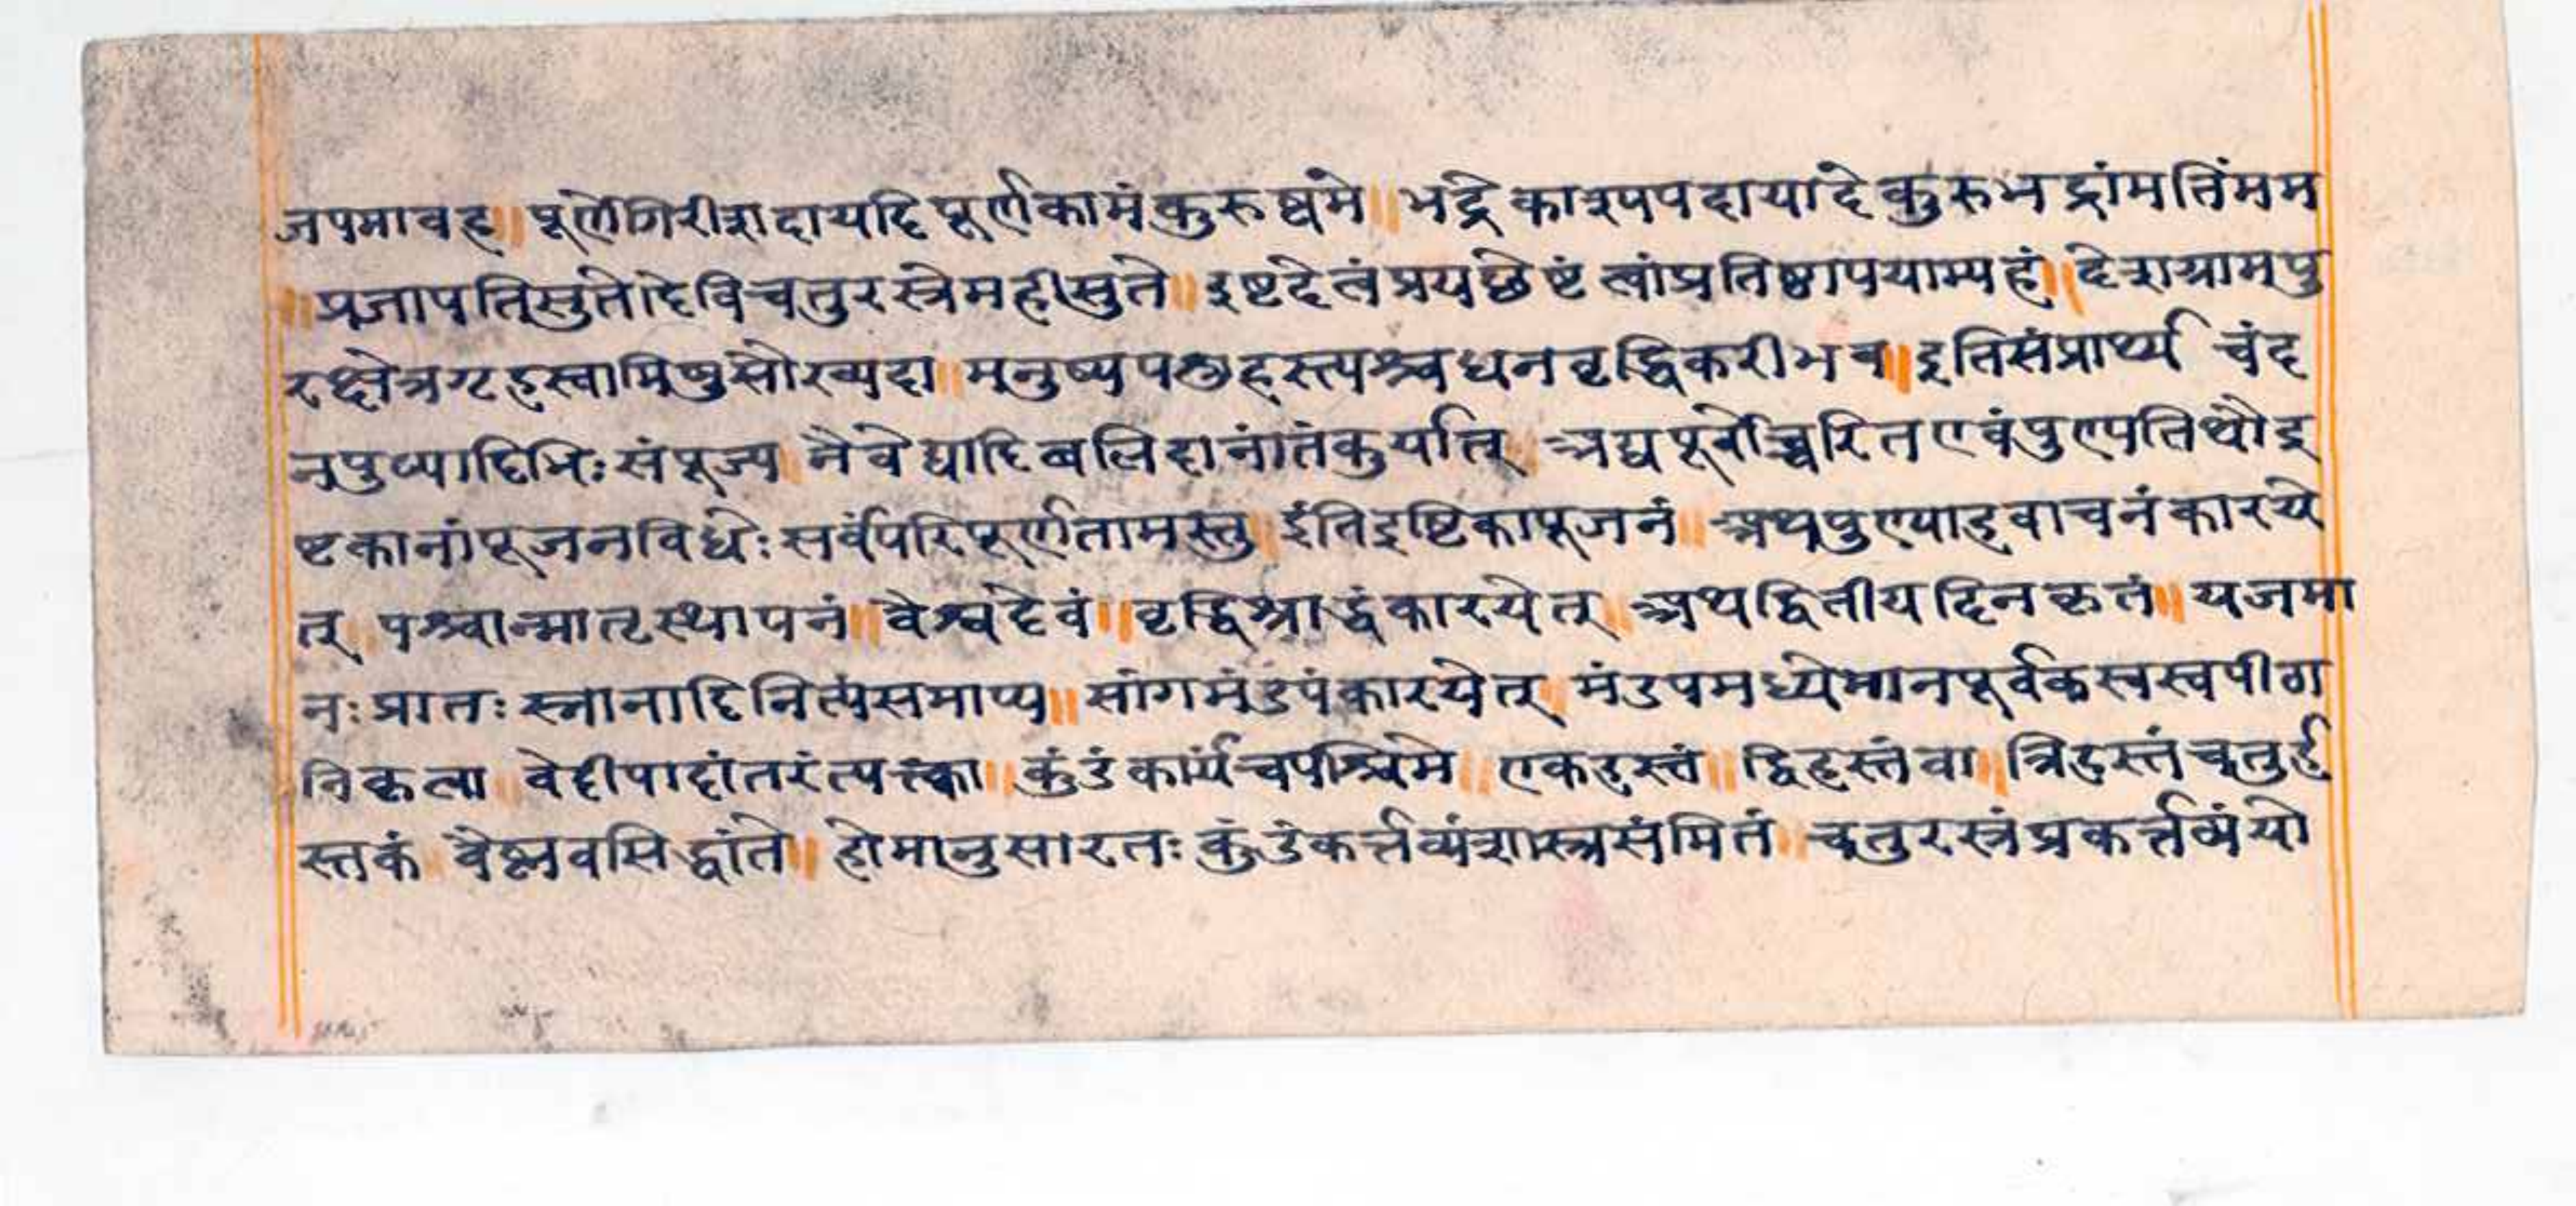 जपमावह॥ पूर्णेगिरीशदायदि पूर्णकामंकुरुष्वमे॥ भद्रेकाश्यपदायादे कुरुभद्रांमतिंमम
॥प्रजापतिसुतेदेविचतुरस्त्रेमहीसुते॥ इष्टदेत्वंप्रयछेष्टं त्वांप्रतिष्ठापयाम्यहं॥ देशग्रामपु
रक्षेत्रगृहस्वामिषुसौख्यदा॥ मनुष्यपशुहस्त्यश्वधनवृद्धिकरीभव॥ इतिसंप्रार्थ्य चंद
नपुष्पादिभिः संपूज्य नैवेद्यादिबलिदानांतंकुर्यात् अद्यपूर्वोच्चरितएवंपुण्यतिथौइ
ष्टकानांपूजनविधेः सर्वंपरिपूर्णतामस्तु इंतिइष्टिकापूजनं॥ अथपुण्याहवाचनंकारये
त् पश्चान्मातृस्थापनं॥ वैश्वदेवं॥ वृद्धिश्राद्धंकारयेत्॥ अथद्वितीयदिनकृतं॥ यजमा
नः प्रातः स्नानादिनित्यंसमाप्य॥ सांगमंडपंकारयेत् मंडपमध्येमानपूर्वकस्वस्वपीठा
निकृत्वा वेदीपादांतरंत्यत्क्का॥ कुंडंकार्यंचपश्चिमे॥ एकहस्तं॥ द्विहस्तंवा॥ त्रिहस्तंचतुर्ह
स्तकं वैष्णवसिद्धांते॥ होमानुसारतः कुंडंकर्त्तव्यंशास्त्रसंमितं॥ चतुरस्त्रंप्रकर्त्तव्यंयो